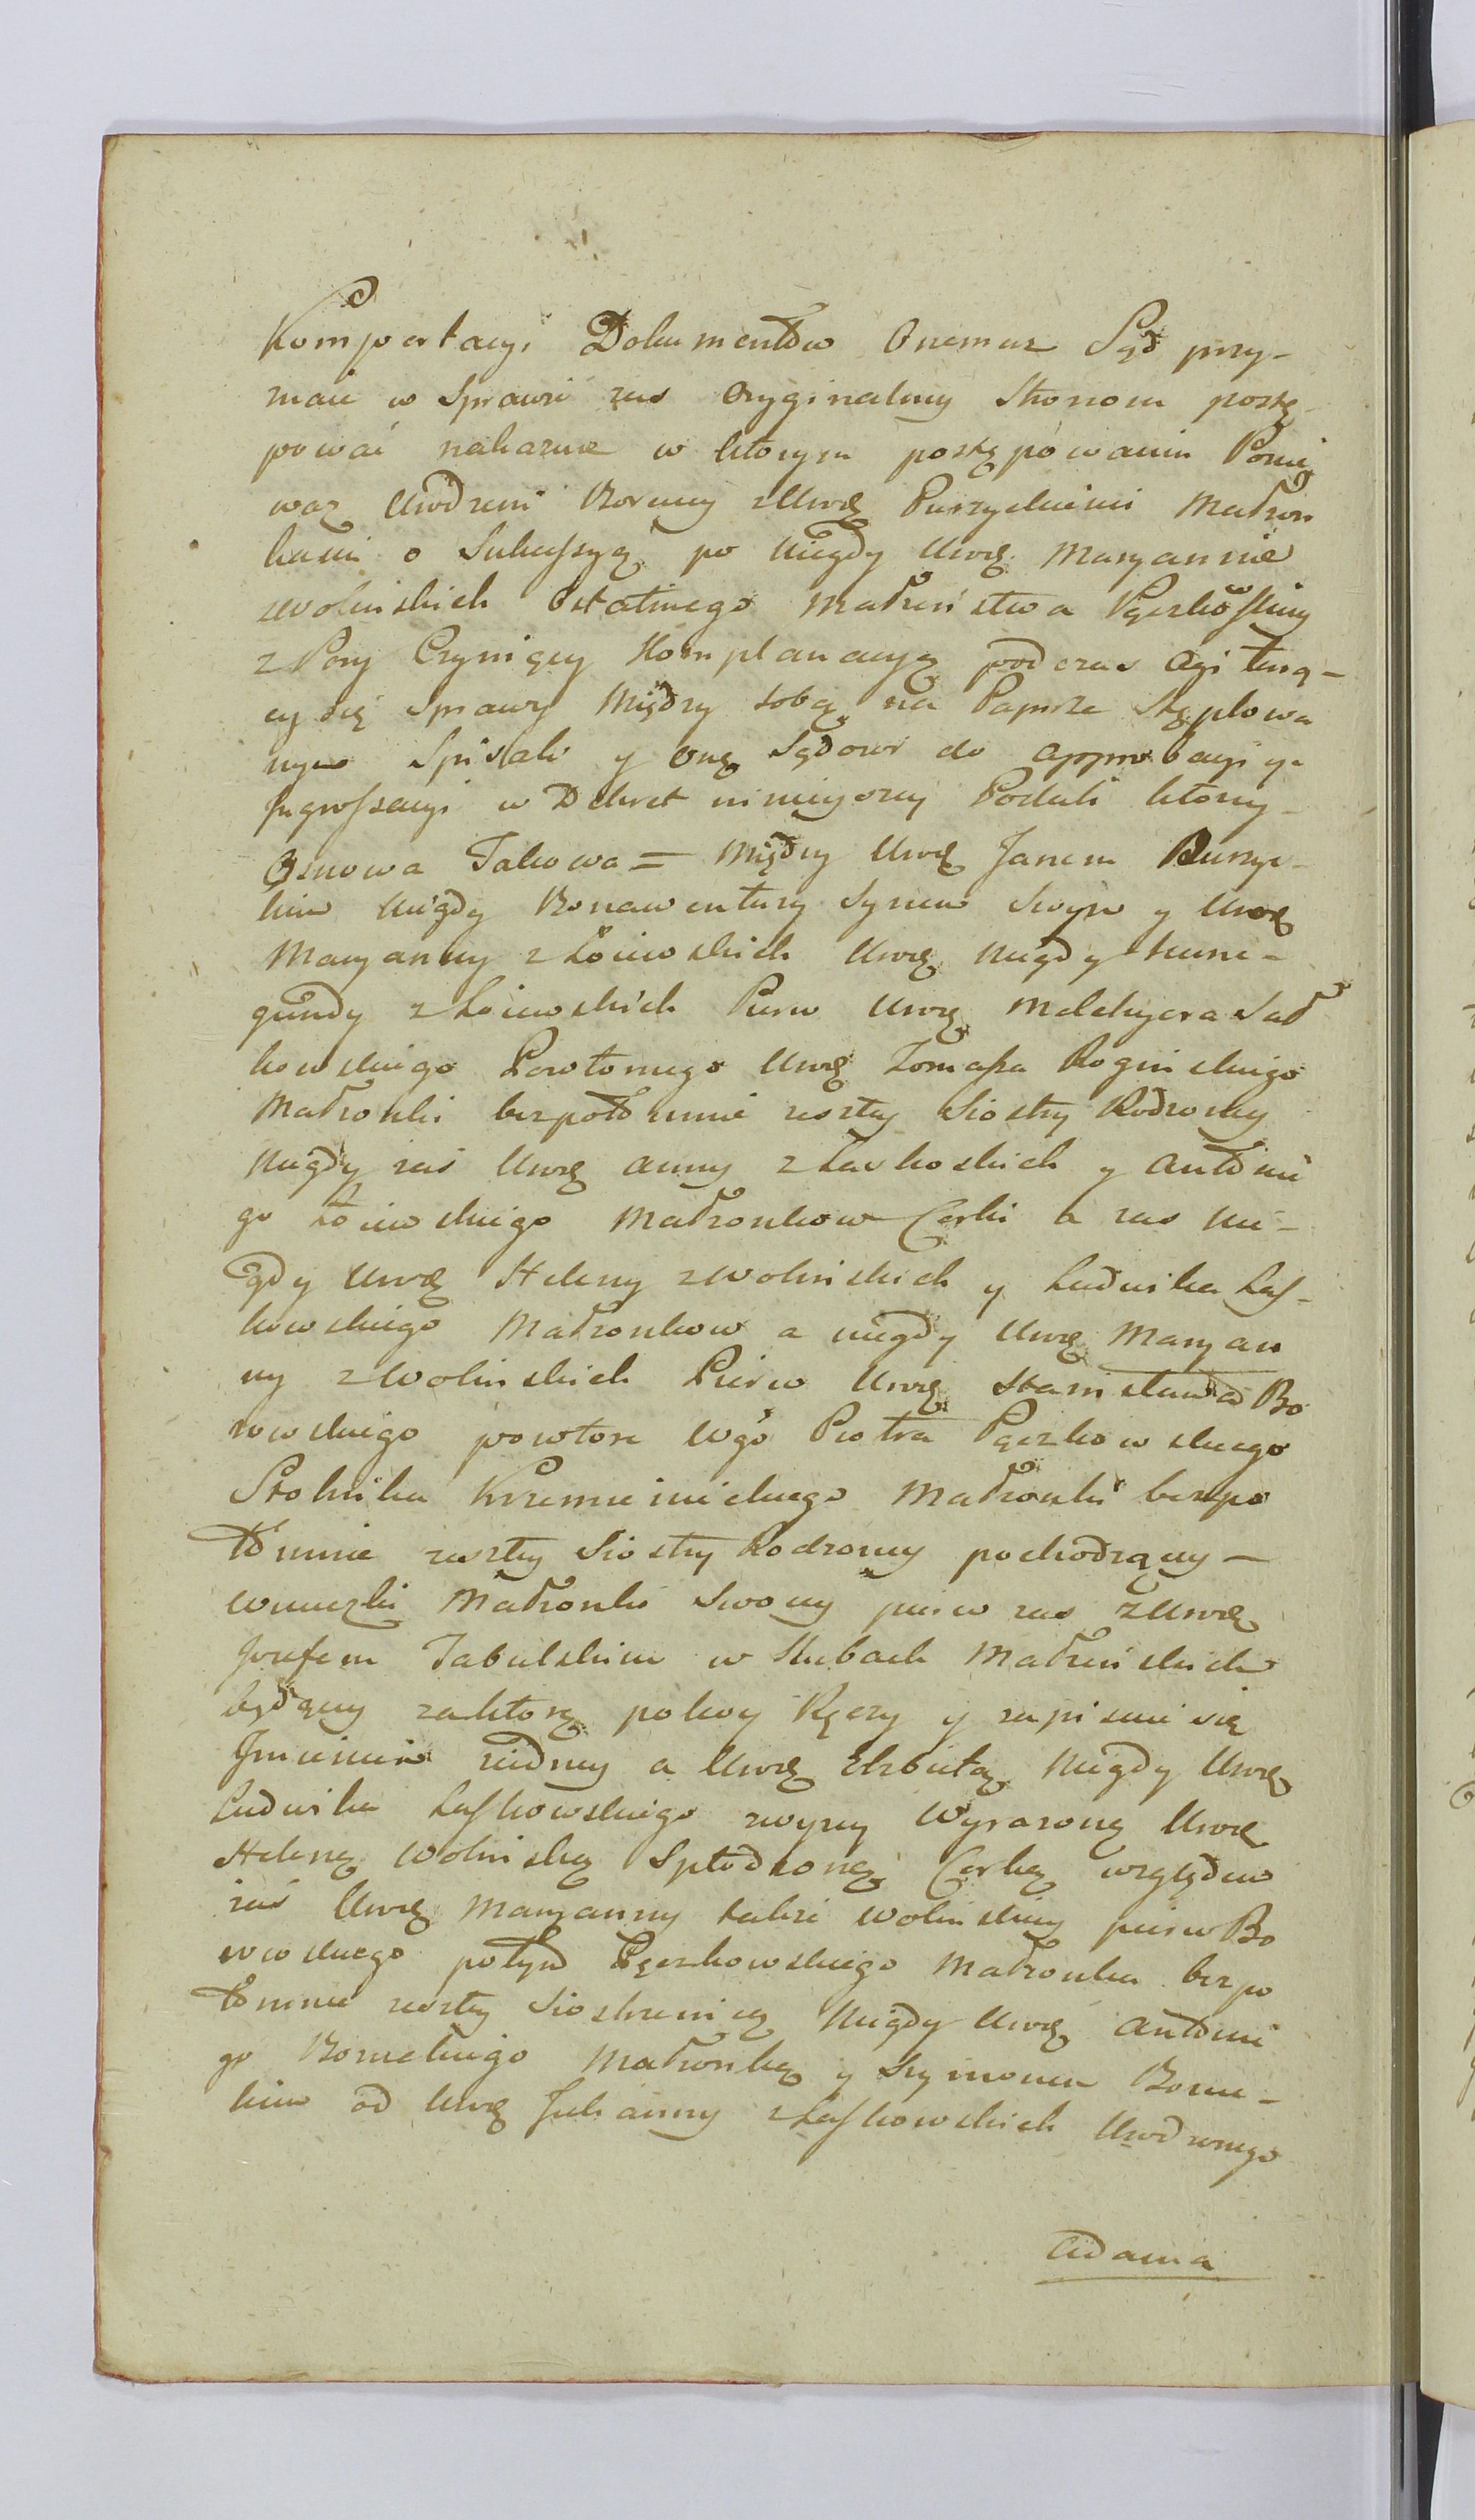 Komportacyi Dokumentów Onemuz Sąd przy-
znaie w Sprawie zas Oryginalney Stronom postę-
pować nakazuie w ktorym postępowaniu Ponie
waz Urodzeni Borzeccy z Urog Puszyckiemi Małżon
kami o Sukcessyą po niegdy Urog Maryannie
z Wolinskich Ostatniego Małżeństwa Pączkowskiey
z Pory Czyniący Komplanacyą podczas agituią-
cey się Sprawy Między sobą na Papirze Stęplowa
nym Spisali y onę Sądowi do approbacyi y
Ingrossacyi w Dekret ninieyszy Podali ktorey
Osnowa Takowa = Między Urog Janem Puszyc-
kim niegdy Bonawentury Synem Swoim y Urog
Maryanny z Łoiewskich Urog niegdy Kune-
gundy z Łoiewskich Pierw Urog Melchyora Sad
kowskiego Powtornego Urog Tomasza Roginskiego
Małżonki bezpotomnie zeszłey Siostry Rodzoney
niegdy zaś Urog Anny z Laskoskich y Antonie
go Łoiewskiego Małżonkow Corki a zas nie-
gdy Urog Heleny z Wolinskich y Ludwika Las-
kowskiego Małżonkow a niegdy Urog Maryan
ny z Wolinskich Pierw Urog Stanisława Bo
rowskiego powtore Wgo Piotra Pączkowskiego
Stolnika Krzemienieckiego Małżonki bezpo
tomnie zeszłey Siostry Rodzoney pochodzącey
wnuczki Małżonki Swoiey pierw zas z Urog
Jozefem Jabulskim w Slubach Małzenskich
będącey za ktorą poley Ręczy y zapisuie się
Imieniem iedney a Urog Elzbietą niegdy Urog
Ludwika Laskowskiego zwyzey Wyrazoną Urog
Heleną Wolinską Spłodzoną Corką względem
zaś Urog Maryanny także Wolinskiey pierw Bo
rowskiego potym Pączkowskiego Małżonka bezpo
tomnie zeszłey Siostrzenicą niegdy Urog Antonie
go Borzeckiego Małżonką y Szymonem Borzec-
kim od Urog Julianny z Laskowskich Urodzonego
Adama